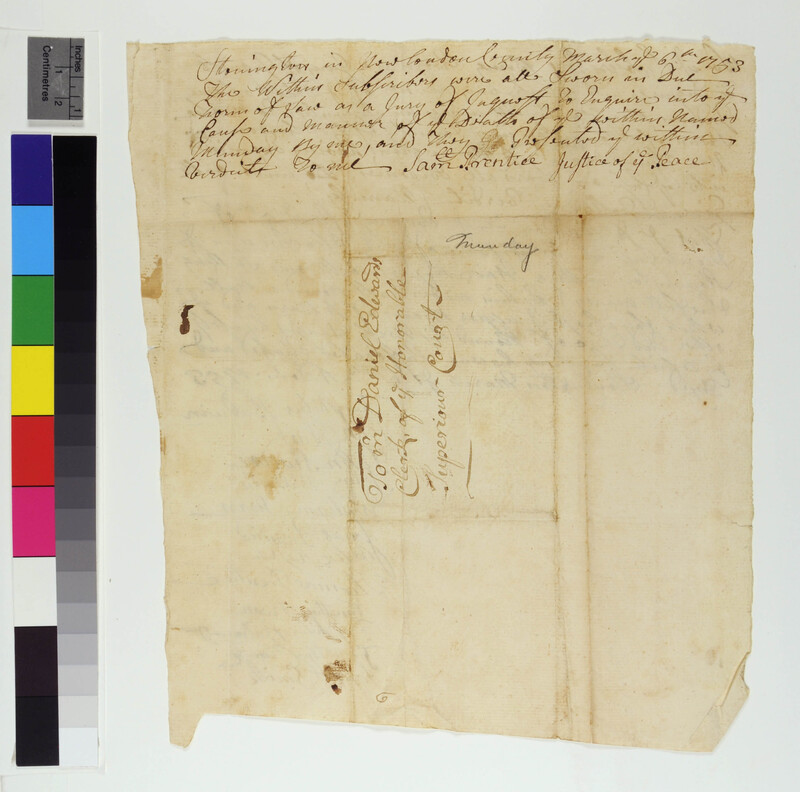 Stonington in New London County March ye 6th 1753
The Within Subscribers were all Sworn in Due
Form of Law as a Jury of Inquest To Enquire into ye
Cause and manner of ye Death of ye within Named
Munday By me, and they Presented ye within
Verdict To me Samll Prentice Justice of ye Peace
Munday
To mr Daniel Edwards
Clerk of ye Honorable
Superiour Court
6
Inches
Centimetres
1
1
2